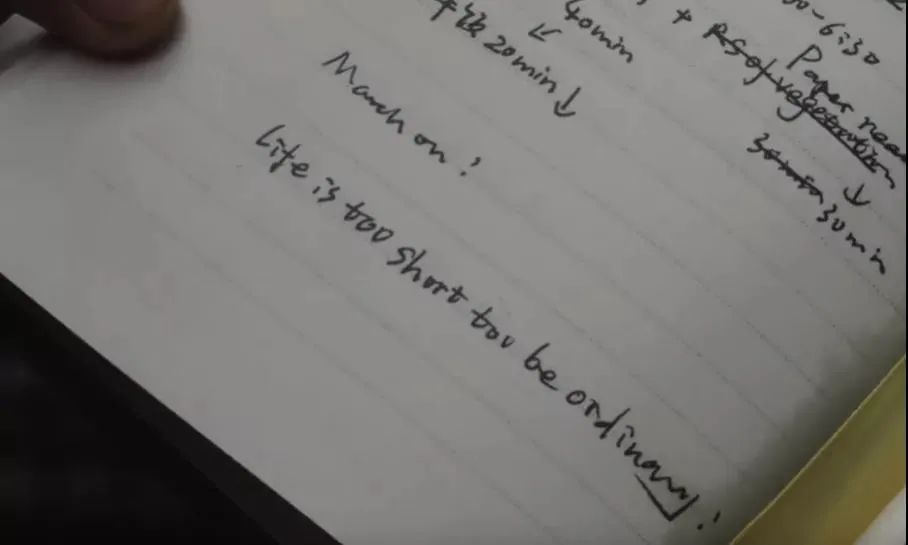 00-6:30
+ RS of vegetation
Paper
30min 30min
40min
20min
March on!
Life is too short too be ordinary!